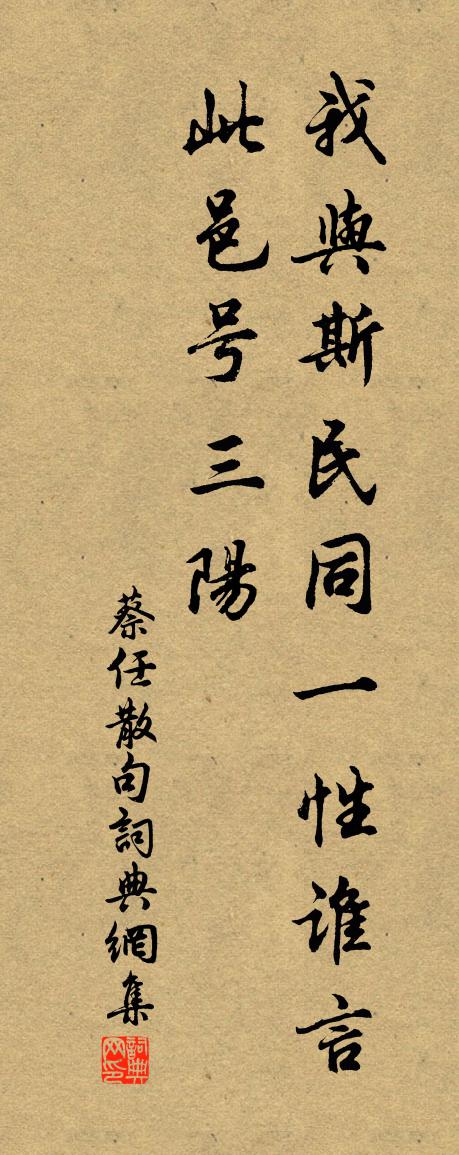 我與斯民同一性誰言
此邑号三陽
蔡任散句詞典網集
詞典网印